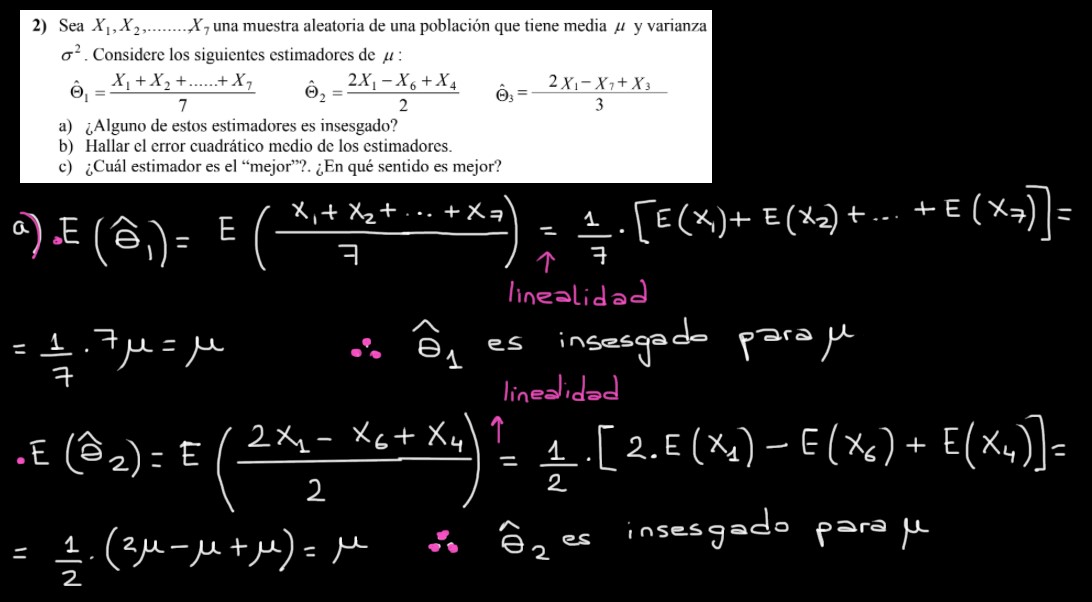 2) Sea X₁, X₂,........,X₇ una muestra aleatoria de una población que tiene media μ y varianza
σ². Considere los siguientes estimadores de μ :
Θ̂₁ = (X₁ + X₂ + ...... + X₇)/7    Θ̂₂ = (2X₁ − X₆ + X₄)/2    Θ̂₃ = (2X₁ − X₇ + X₃)/3
a) ¿Alguno de estos estimadores es insesgado?
b) Hallar el error cuadrático medio de los estimadores.
c) ¿Cuál estimador es el “mejor”?. ¿En qué sentido es mejor?
a) . E(Θ̂₁) = E((X₁ + X₂ + ... + X₇)/7) = 1/7 . [E(X₁) + E(X₂) + ... + E(X₇)] =
↑
linealidad
= 1/7 . 7μ = μ ∴ Θ̂₁ es insesgado para μ
linealidad
↑
. E(Θ̂₂) = E((2X₁ − X₆ + X₄)/2) = 1/2 . [2.E(X₁) − E(X₆) + E(X₄)] =
= 1/2 . (2μ − μ + μ) = μ ∴ Θ̂₂ es insesgado para μ